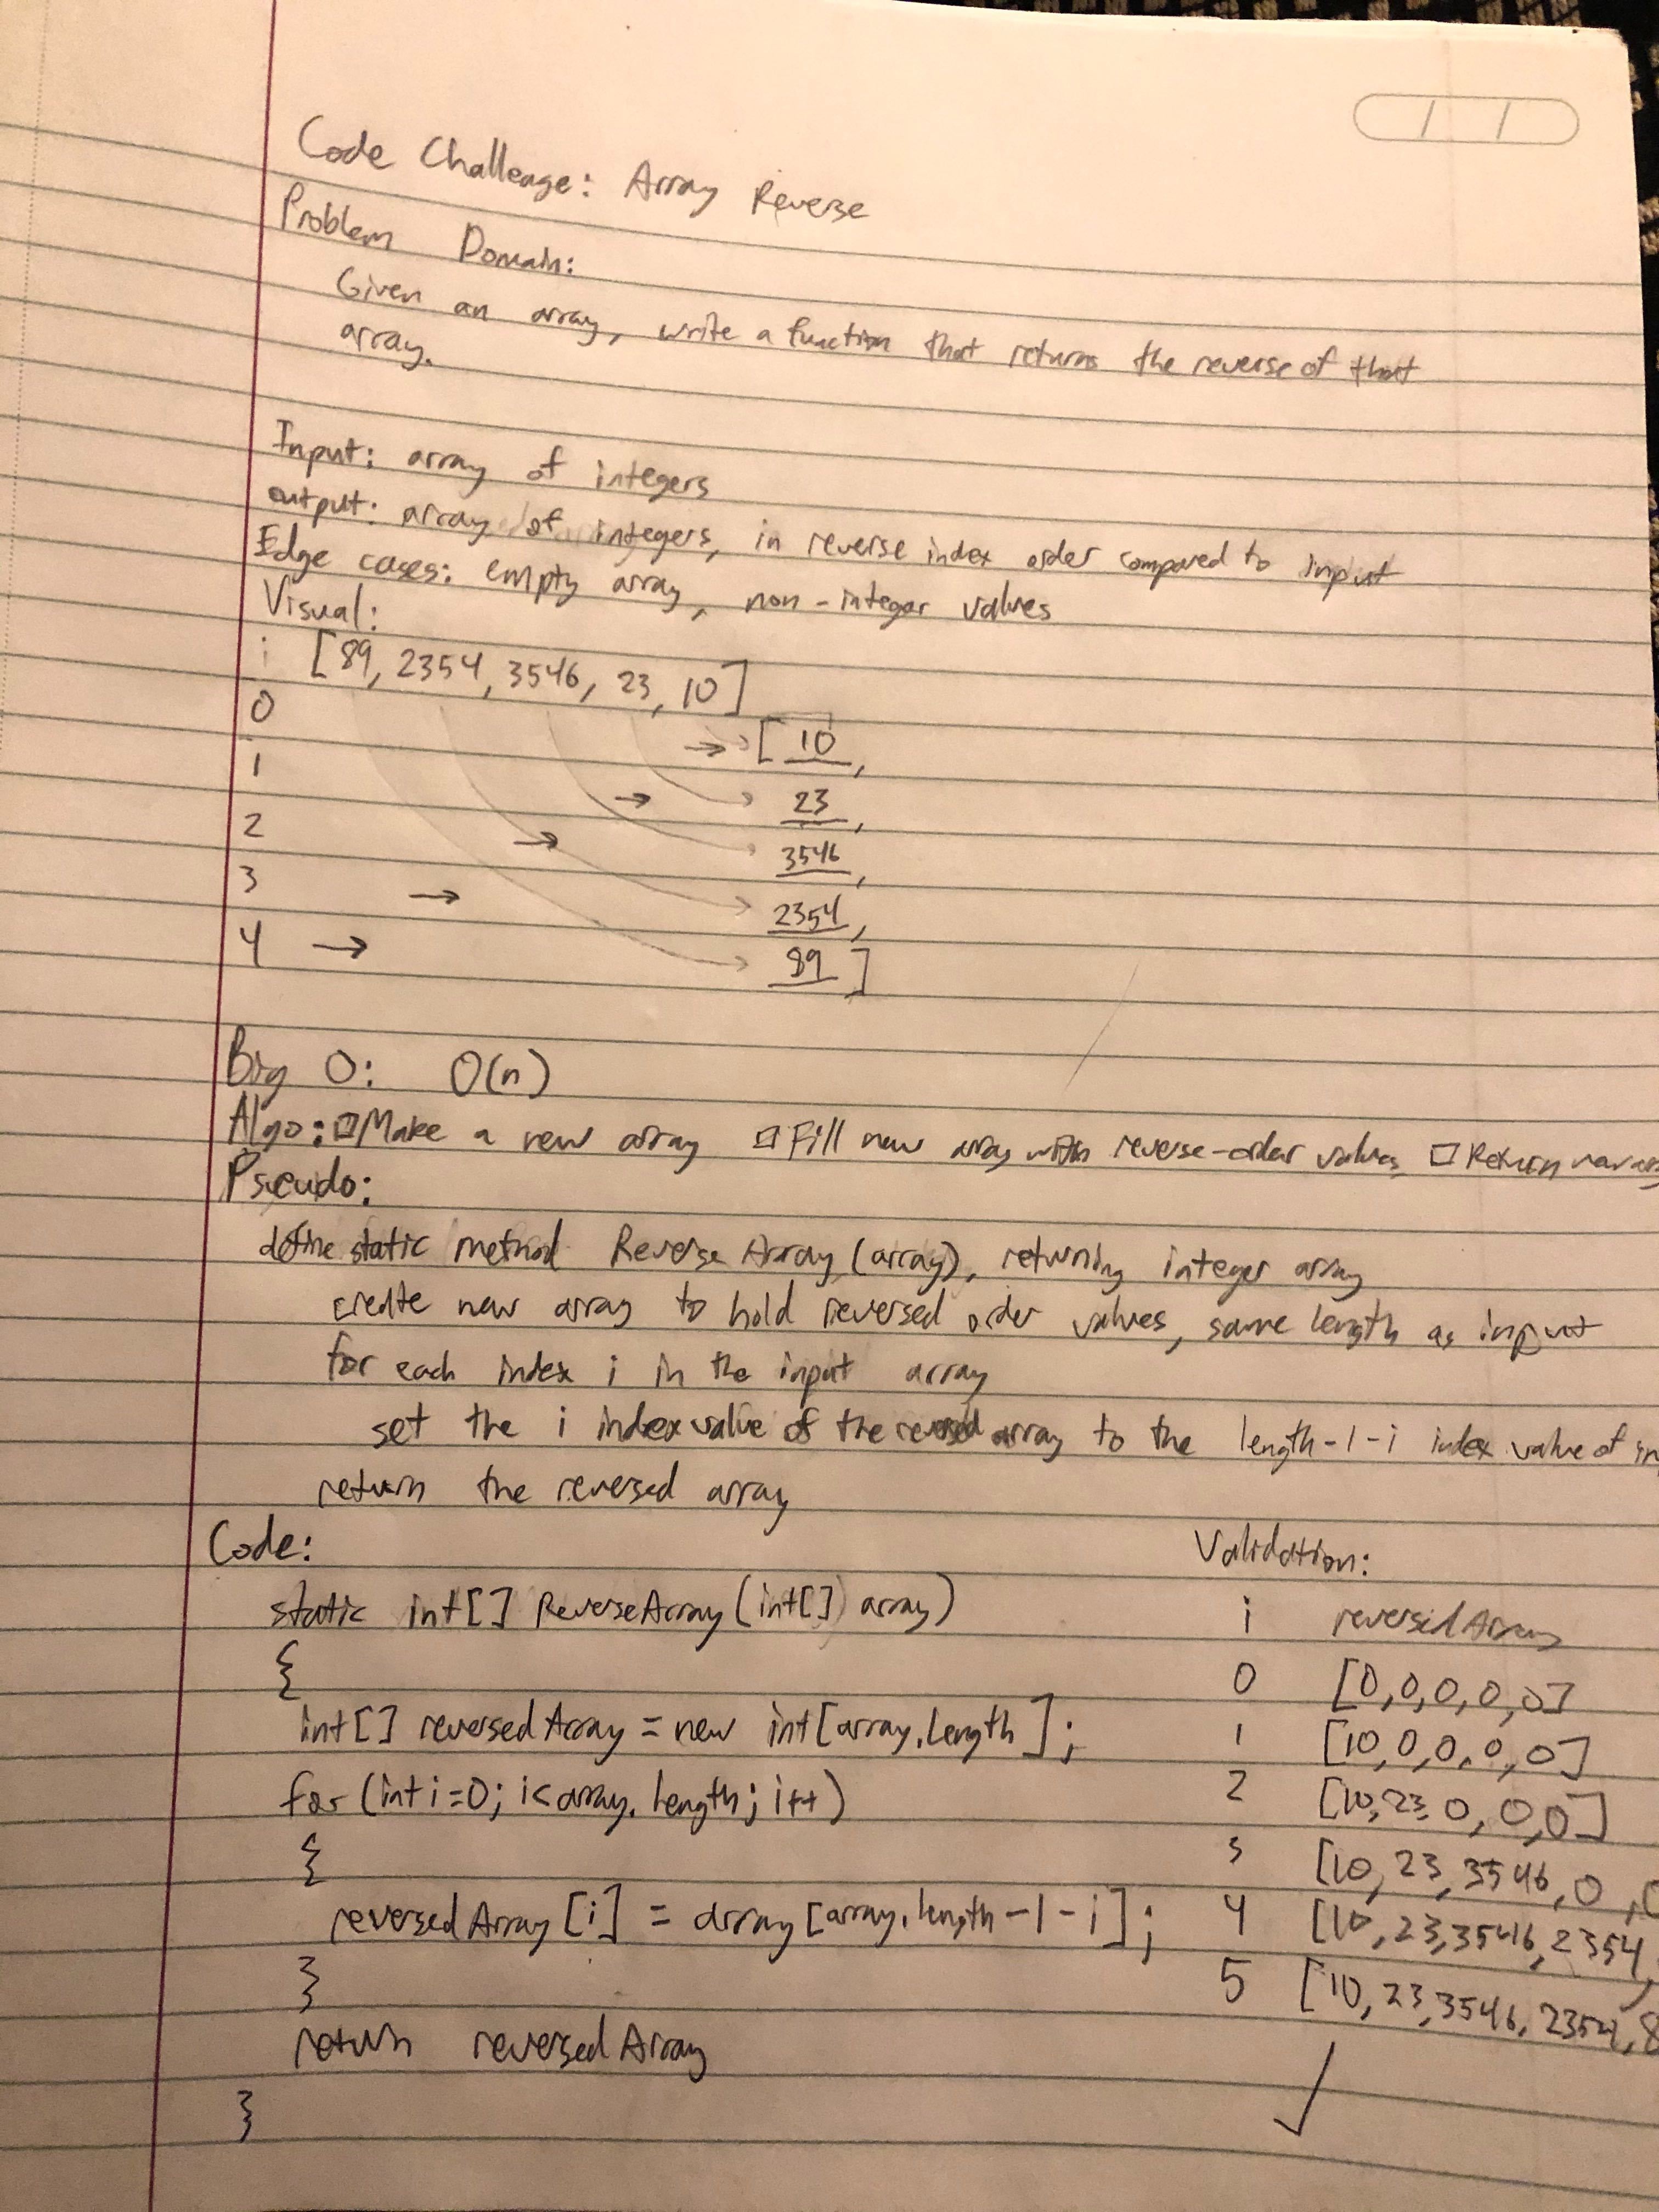 Code Challenge: Array Reverse
Problem Domain:
Given an array, write a function that returns the reverse of that
array.
Input: array of integers
output: array of integers, in reverse index order compared to input
Edge cases: empty array, non-integer values
Visual:
i [89, 2354, 3546, 23, 10]
0 → [10,
1 → 23,
2 → 3546,
3 → 2354,
4 → 89]
Big O: O(n)
Algo: □ Make a new array □ Fill new array with reverse-order values □ Return
Pseudo:
define static method ReverseArray(array), returning integer array
create new array to hold reversed order values, same length as input
for each index i in the input array
set the i index value of the reversed array to the length-1-i index value of
return the reversed array
Code:
static int[] ReverseArray(int[] array)
{
int[] reversedArray = new int[array.length];
for (int i=0; i<array.length; i++)
{
reversedArray[i] = array[array.length-1-i];
}
return reversedArray
}
Validation:
i reversedArray
0 [0,0,0,0,0]
1 [10,0,0,0,0]
2 [10,23,0,0,0]
3 [10,23,3546,0,
4 [10,23,3546,2354,
5 [10,23,3546,2354,8
✓